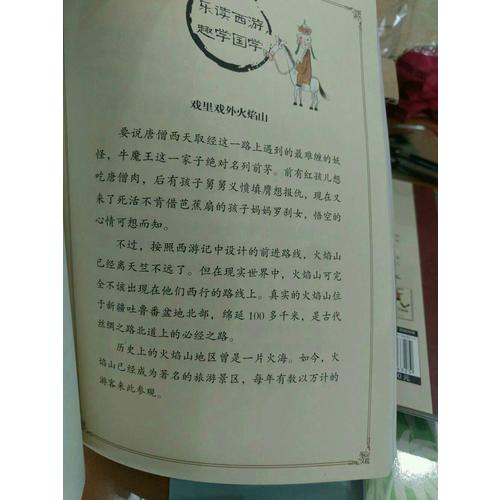 乐读西游，
趣学国学
戏里戏外火焰山
要说唐僧西天取经这一路上遇到的最难缠的妖
怪，牛魔王这一家子绝对名列前茅。前有红孩儿想
吃唐僧肉，后有孩子舅舅义愤填膺想报仇，现在又
来了死活不肯借芭蕉扇的孩子妈妈罗刹女，悟空的
心情可想而知。
不过，按照西游记中设计的前进路线，火焰山
已经离天竺不远了。但在现实世界中，火焰山可完
全不该出现在他们西行的路线上。真实的火焰山位
于新疆吐鲁番盆地北部，绵延 100 多千米，是古代
丝绸之路北道上的必经之路。
历史上的火焰山地区曾是一片火海。如今，火
焰山已经成为著名的旅游景区，每年有数以万计的
游客来此参观。